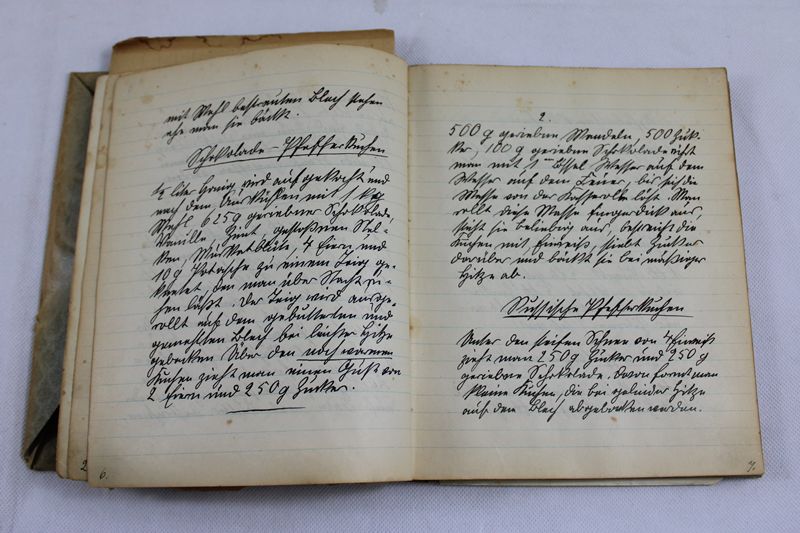 mit Mehl bestreuten Blech stehen
ehe man sie bäckt.
Schokolade-Pfefferkuchen
½ Liter Honig wird aufgekocht und
nach dem Auskühlen mit 1 kg
Mehl, 625 g geriebener Schokolade,
Vanille, Zimt, gestoßenen Nel-
ken, Muskatblüte, 4 Eiern und
10 g Pottasche zu einem Teig ge-
knetet, den man über Nacht ru-
hen läßt. Der Teig wird ausge-
rollt auf dem gebutterten und
gemehlten Blech bei leichter Hitze
gebacken. Über den noch warmen
Kuchen zieht man einen Guß von
2 Eiern und 250 g Zucker.
2
6.
2.
500 g geriebene Mandeln, 500 Zuk-
ker, 100 g geriebene Schokolade rührt
man mit 1 Eßl. Wasser auf dem
Wasser auf dem Feuer, bis sich die
Masse von der Kasserolle löst. Man
rollt diese Masse fingerdick aus,
sticht sie beliebig aus, bestreicht die
Kuchen mit Eiweiß, siebt Zucker
darüber und bäckt sie bei mäßiger
Hitze ab.
Pfefferkuchen
Unter den steifen Schnee von 4 Eiweiß
zieht man 250 g Zucker und 250 g
geriebene Schokolade. Davon formt man
kleine Kuchen, die bei gelinder Hitze
auf dem Blech abgebacken werden.
7.